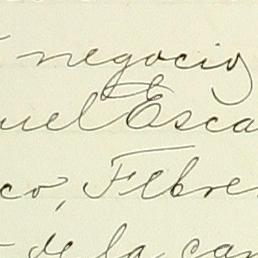 negocio
uel Esca
co, Febre
de la can